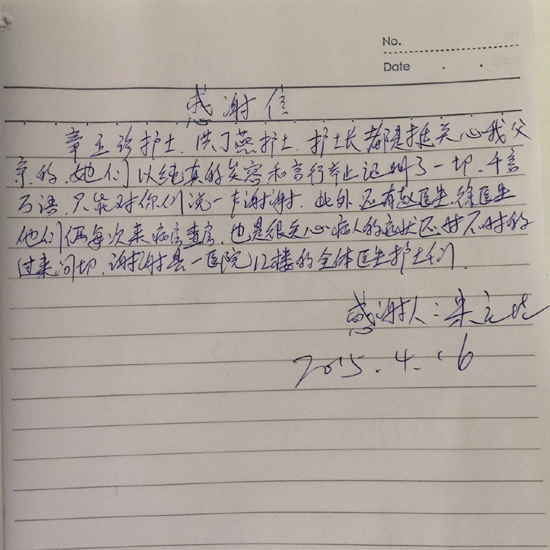 No.
Date . .
感谢信
章玉珍护士、洪丁燕护士、护士长都是挺关心我父
亲的,她们以纯真的笑容和言行举止证明了一切,千言
万语,只能对你们说一声谢谢。此外还有赵医生、徐医生
他们俩每次来病房查房,也是很关心病人的病状还时不时的
过来问切,谢谢县一医院12楼的全体医生护士们。
感谢人:朱
2015.4.16